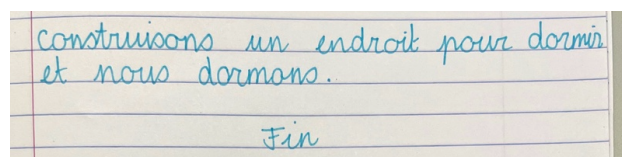 construisons un endroit pour dormir
et nous dormons.
Fin